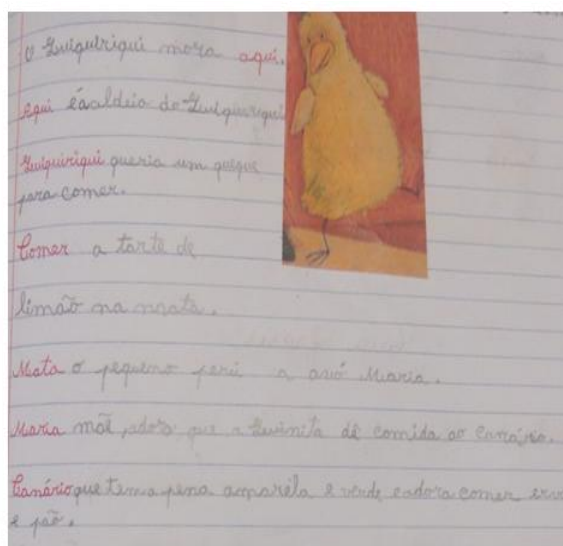 O Quiquiriqui mora aqui.
Aqui é a aldeia do Quiquiriqui
Quiquiriqui queria um queque
para comer.
Comer a tarte de
limão na mata.
Mata o pequeno perú a avó Maria.
Maria mãe, adora que a Joaninha dê comida ao canário.
Canário que tem a pena amaréla e verde e adora comer
e pão.